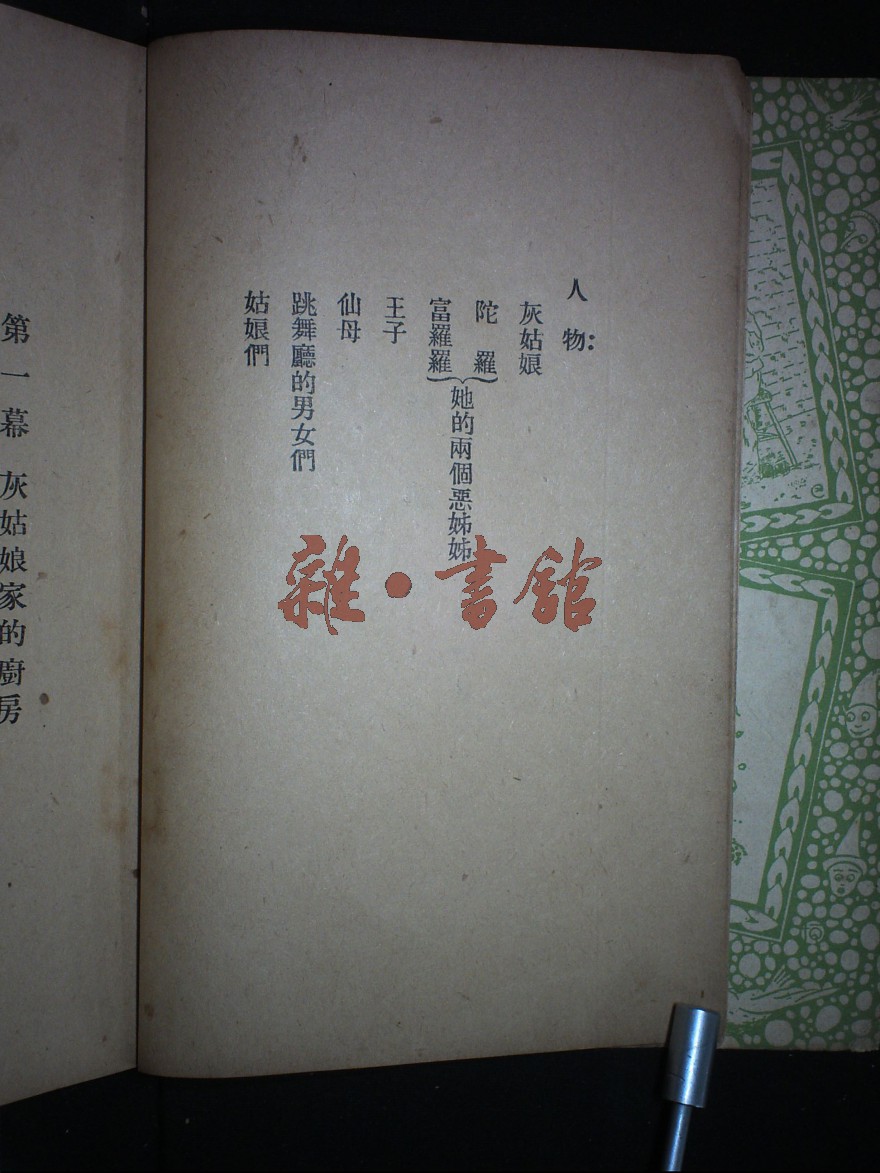 人物：
灰姑娘
陀羅
富羅羅
她的兩個惡姊姊
王子
仙母
跳舞廳的男女們
姑娘們
第一幕 灰姑娘家的廚房
雜·書館